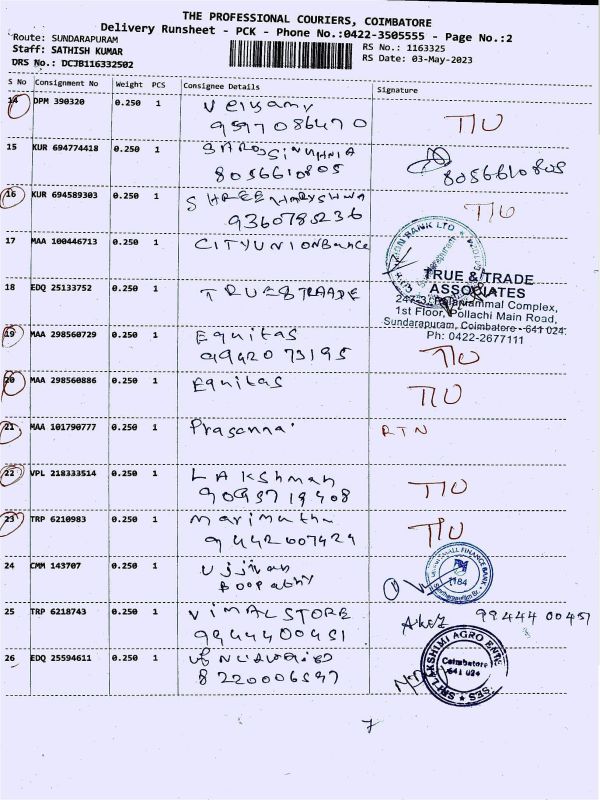 THE PROFESSIONAL COURIERS, COIMBATORE
Delivery Runsheet - PCK - Phone No.:0422-3505555 - Page No.:2
Route: SUNDARAPURAM
Staff: SATHISH KUMAR
RS No.: 1163325
DRS No.: DCJB116332502
RS Date: 03-May-2023
S No Consignment No Weight PCS Consignee Details Signature
14 DPM 390320 0.250 1
T/U
15 KUR 694774418 0.250 1
8056610805 8056610805
16 KUR 694589303 0.250 1
9360785236 T/U
17 MAA 100446713 0.250 1 CITYUNIONBance
BANK LTD
TRUE & TRADE
ASSOCIATES
18 EDQ 25133752 0.250 1 TRUE&TRAADE
Complex,
1st Floor, Pollachi Main Road,
Sundarapuram, Coimbatore - 641 024.
Ph: 0422-2677111
19 MAA 298560729 0.250 1 Equitas
9942073195 T/U
20 MAA 298560886 0.250 1 Equitas T/U
21 MAA 101790777 0.250 1 Prasanna RTN
22 VPL 218333514 0.250 1 LAKshman
9095719408 T/U
23 TRP 6210983 0.250 1 Marimuthu
9442007424 T/U
24 CMM 143707 0.250 1 Ujjivan
Boopathy
SMALL FINANCE BANK
1184
25 TRP 6218743 0.250 1 VIMALSTORE
9944400451 99444 00451
26 EDQ 25594611 0.250 1
8220006597
SRI LAKSHIMI AGRO ENTS
Coimbatore
641 024
7